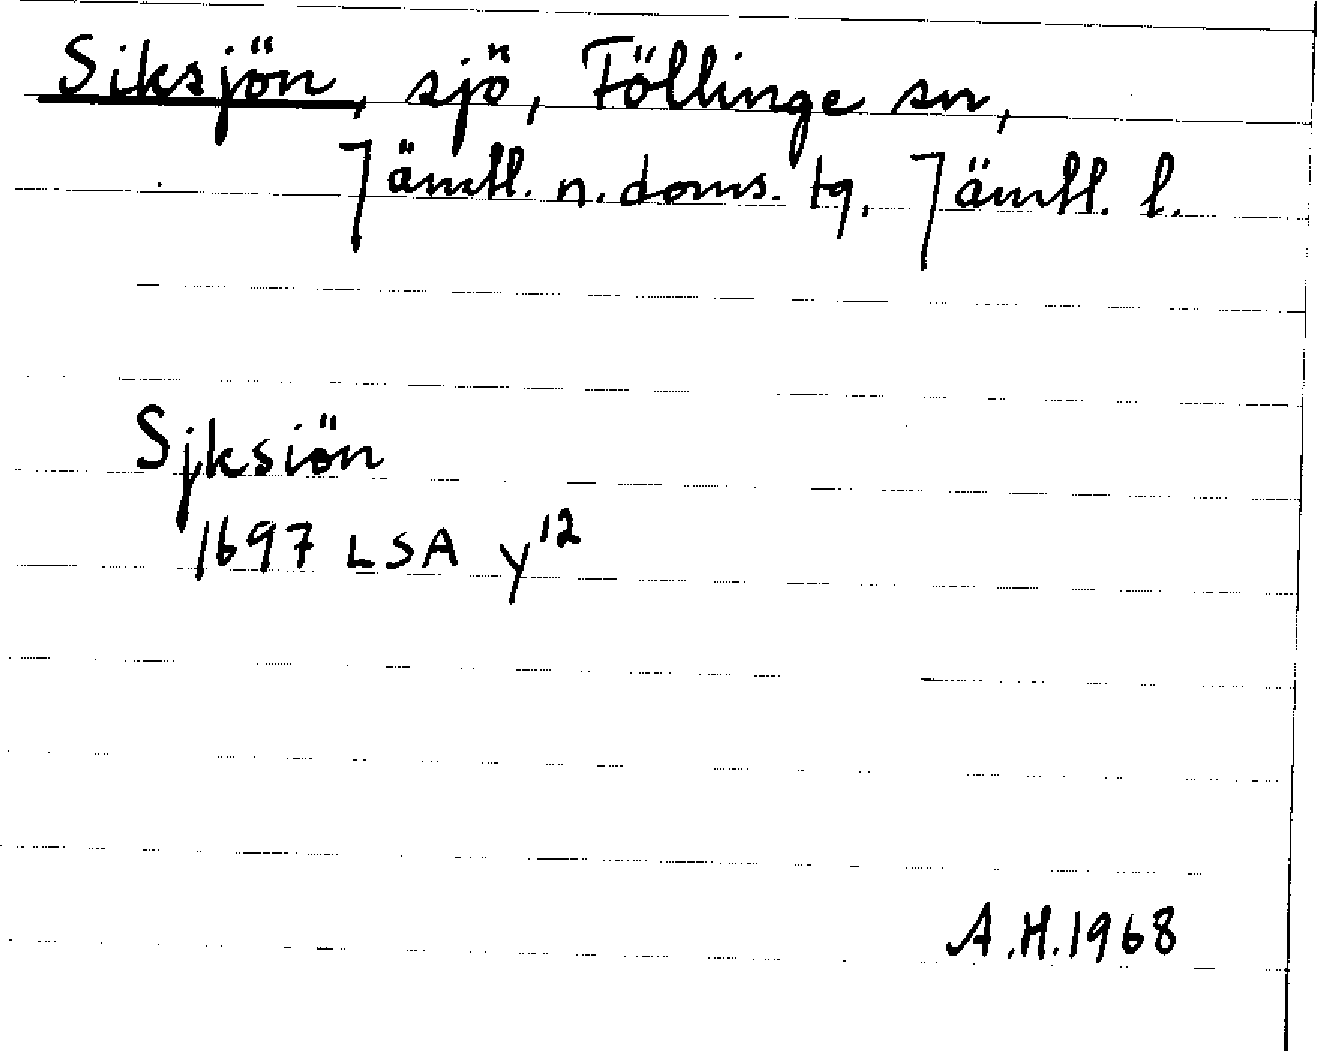 Siksjön, sjö, Föllinge sn,
Jämtl. n. doms. tg, Jämtl. l.
Sjksiön
1697 LSA y¹²
A.H.1968